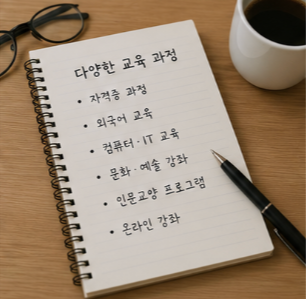 다양한 교육 과정
• 자격증 과정
• 외국어 교육
• 컴퓨터·IT 교육
• 문화·예술 강좌
• 인문교양 프로그램
• 온라인 강좌